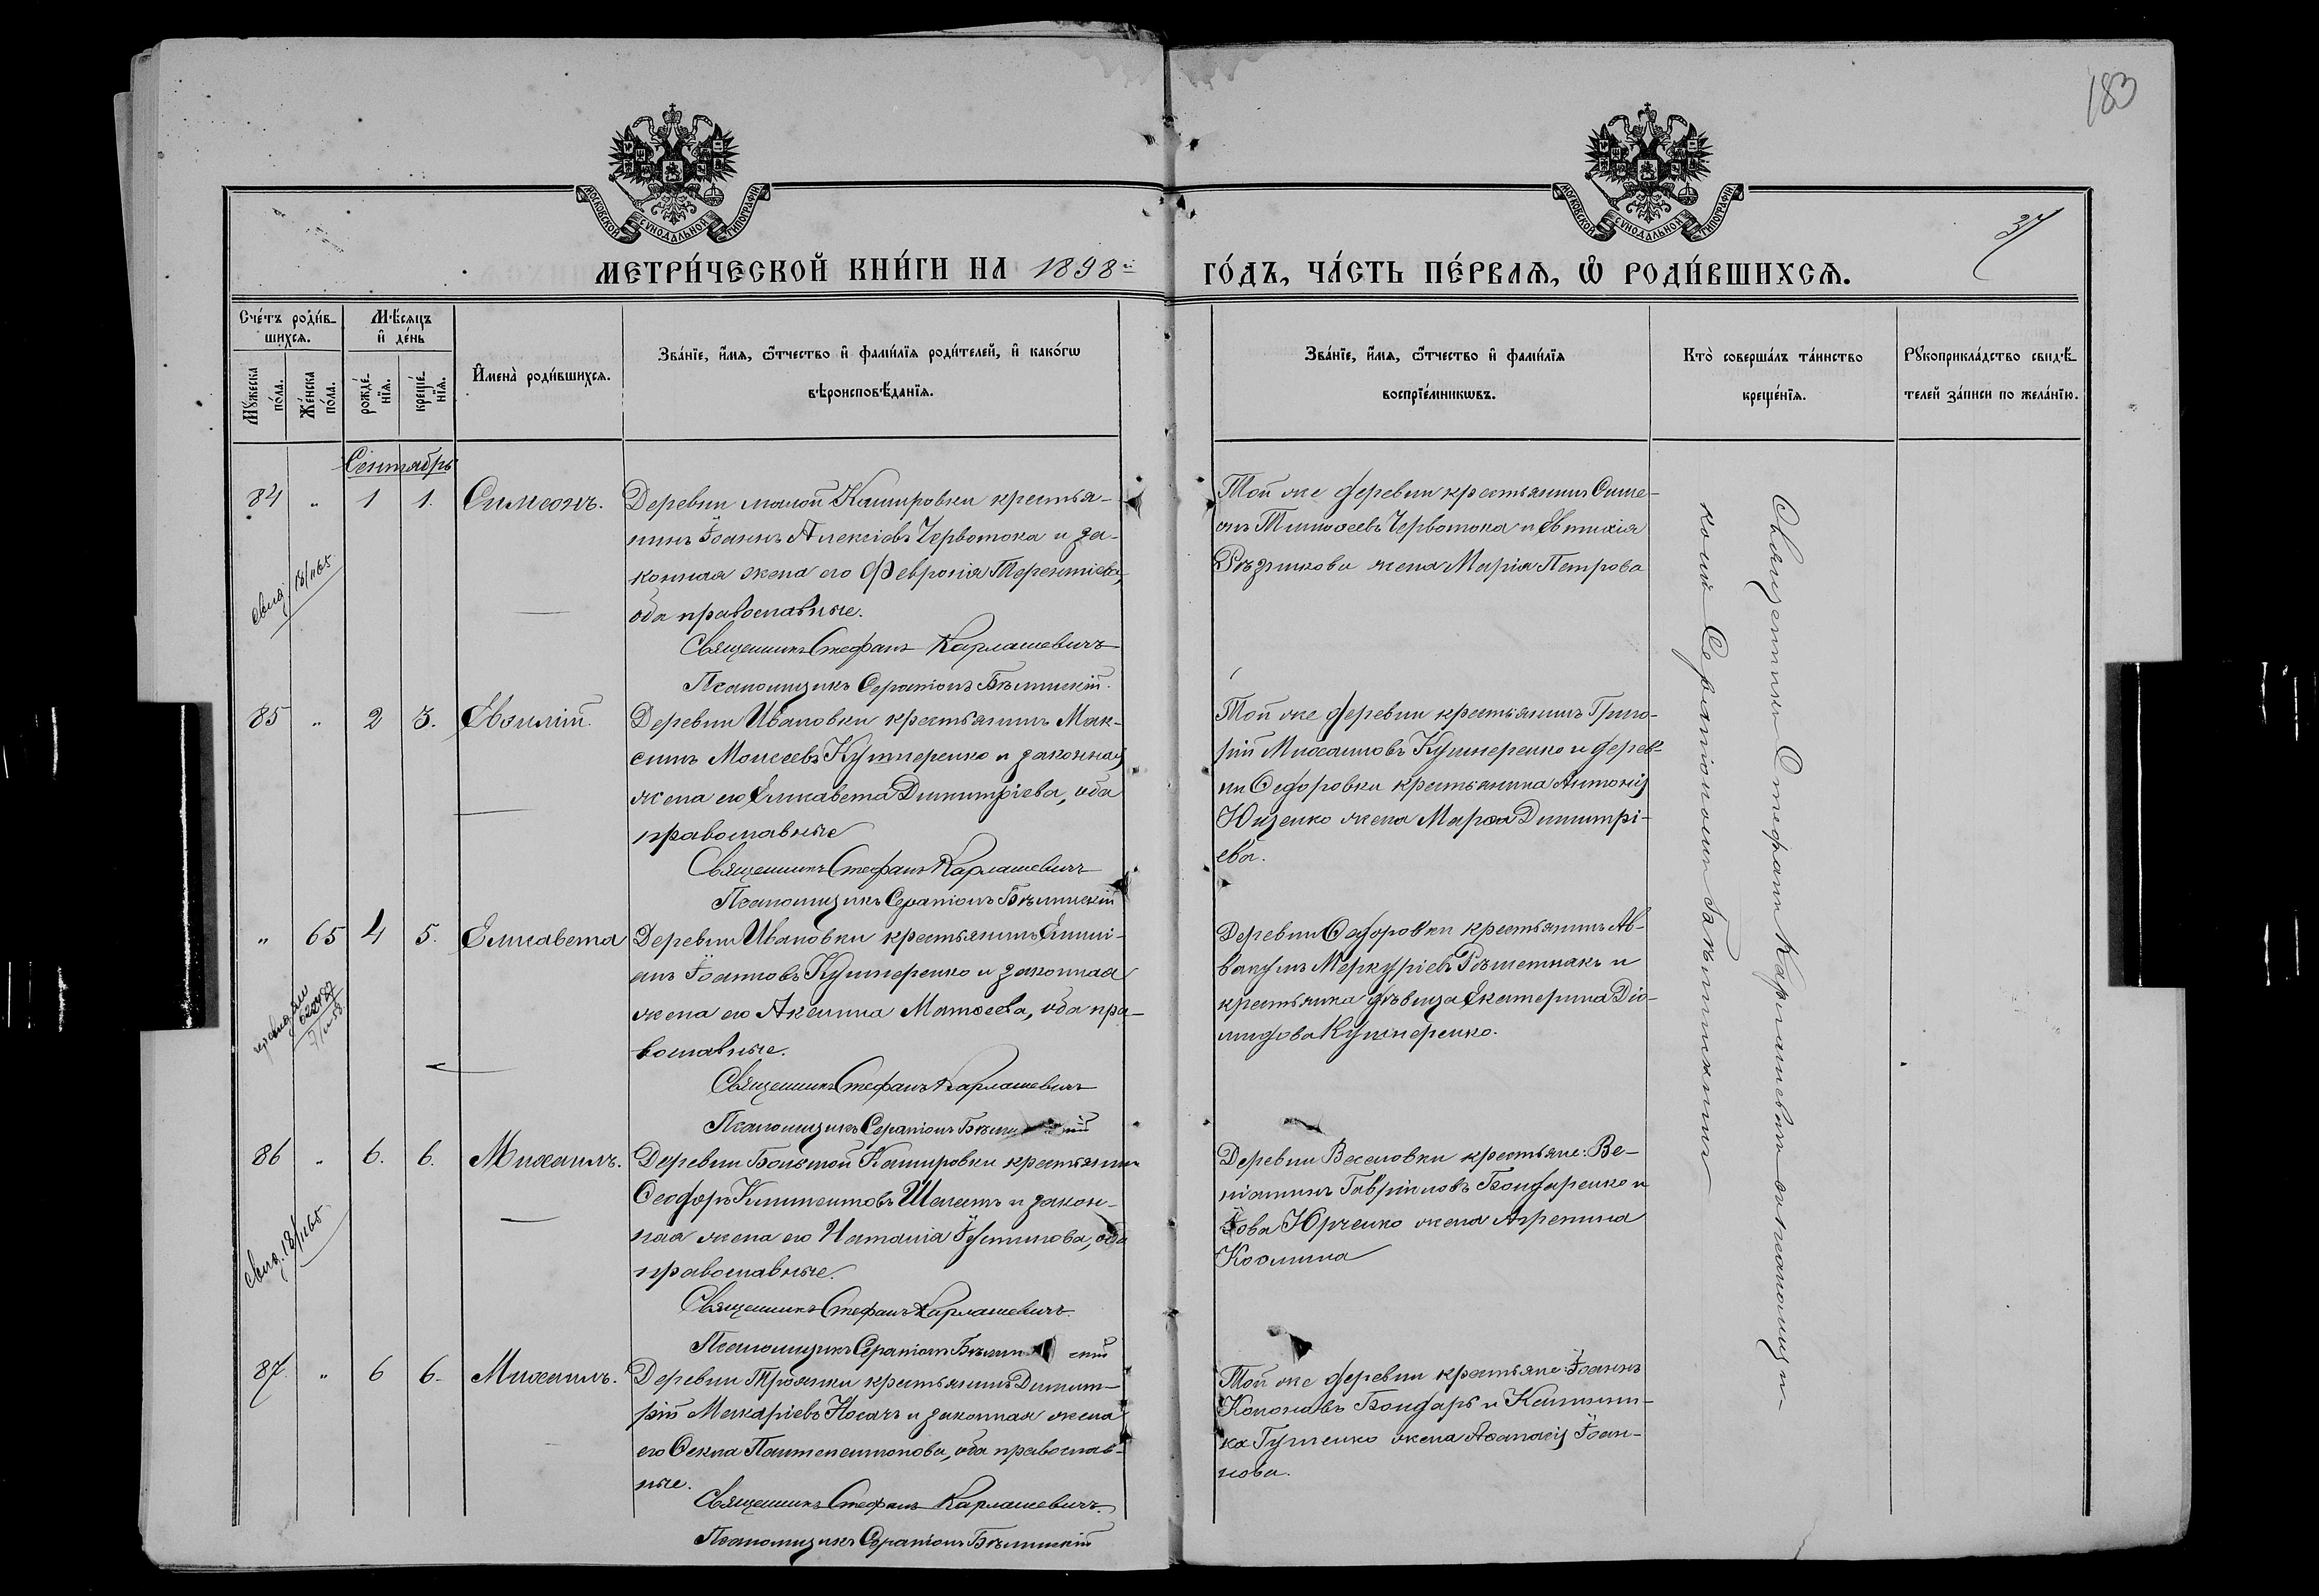 183
МОСКОВСКОЙ СѴНОДАЛЬНОЙ ТИПОГРАФІИ
МОСКОВСКОЙ СѴНОДАЛЬНОЙ ТИПОГРАФІИ
37
МЕТРИ́ЧЕСКОЙ КНИ́ГИ НА 1898й ГО́ДЪ, ЧА́СТЬ ПЕ́РВАѦ, Ѡ РОДИ́ВШИХСѦ.
Сче́тъ роди́в-
шихсѧ.
Мѣ́сяцъ
и҆ де́нь
Мꙋ́жеска
по́ла.
Же́нска
по́ла.
рожде́-
нїѧ.
креще́-
нїѧ.
И҆мена̀ роди́вшихсѧ.
Зва́нїе, и҆́мѧ, ѻ҆́тчество и҆ фами́лїѧ роди́телей, и҆ како́гѡ
вѣроисповѣ́данїѧ.
Зва́нїе, и҆́мѧ, ѻ҆́тчество и҆ фами́лїѧ
воспрїе́мникѡвъ.
Кто̀ соверша́лъ та́инство
креще́нїѧ.
Рꙋкоприкла́дство свидѣ́-
телей за́писи по жела́нїю.
Сентябрь
84 " 1 1. Симеонъ.
Деревни малой Кашировки крестья-
нинъ Іоаннъ Алексіевъ Червотока и за-
конная жена его Февронія Терентіева,
оба православные.
Священникъ Стефанъ Карлашевичъ
Псаломщикъ Серапіонъ Бѣлинскій.
Той же деревни крестьянинъ Симе-
онъ Тимоѳеевъ Червотока и Евтихія
Рѣзникова жена Марія Петрова
свид. 18/1165
85 " 2 3. Евѳилій.
Деревни Ивановки крестьянинъ Мак-
симъ Моисеевъ Кушнеренко и законная
жена его Елисавета Димитріева, оба
православные
Священникъ Стефанъ Карлашевичъ
Псаломщикъ Серапіонъ Бѣлинскій
Той же деревни крестьянинъ Григо-
рій Михаиловъ Кушнеренко и дерев-
ни Ѳедоровки крестьянина Антонія
Ющенко жена Марѳа Димитрі-
ева.
" 65 4 5. Елисавета
Деревни Ивановки крестьянинъ Емилі-
анъ Іоанновъ Кушнеренко и законная
жена его Акилина Матѳеева, оба пра-
вославные.
Священникъ Стефанъ Карлашевичъ
Псаломщикъ Серапіонъ
Деревни Ѳедоровки крестьянинъ Ав-
вакумъ Меркуріевъ Рѣшетнякъ и
крестьянка дѣвица Екатерина Діо-
мидова Кушнеренко.
86 " 6. 6. Михаилъ.
Деревни Большой Каширowки крестьянинъ
Ѳеодоръ Климентовъ Шелестъ и закон-
ная жена его Наталія Іустинова, оба
православные.
Священникъ Стефанъ Карлашевичъ.
Псаломщикъ Серапіонъ
Деревни Веселовки крестьяне: Ве-
ніаминъ Гавріиловъ Бондаренко и
Іова Юрченко жена Агрепина
Космина
свид. 18/1165
87. " 6 6. Михаилъ.
Деревни Троянки крестьянинъ Димит-
рій Макаріевъ Носачъ и законная жена
его Ѳекла Пантелеимонова, оба православ-
ные.
Священникъ Стефанъ Карлашевичъ.
Псаломщикъ Серапіонъ Бѣлинскій
Той же деревни крестьяне: Іоаннъ
Кононовъ Бондарь и Каллини-
ка Гуменко жена Аѳанасія Іоан-
нова.
Священникъ Стефанъ Карлашевичъ съ псаломщи-
комъ Серапіономъ Бѣлинскимъ